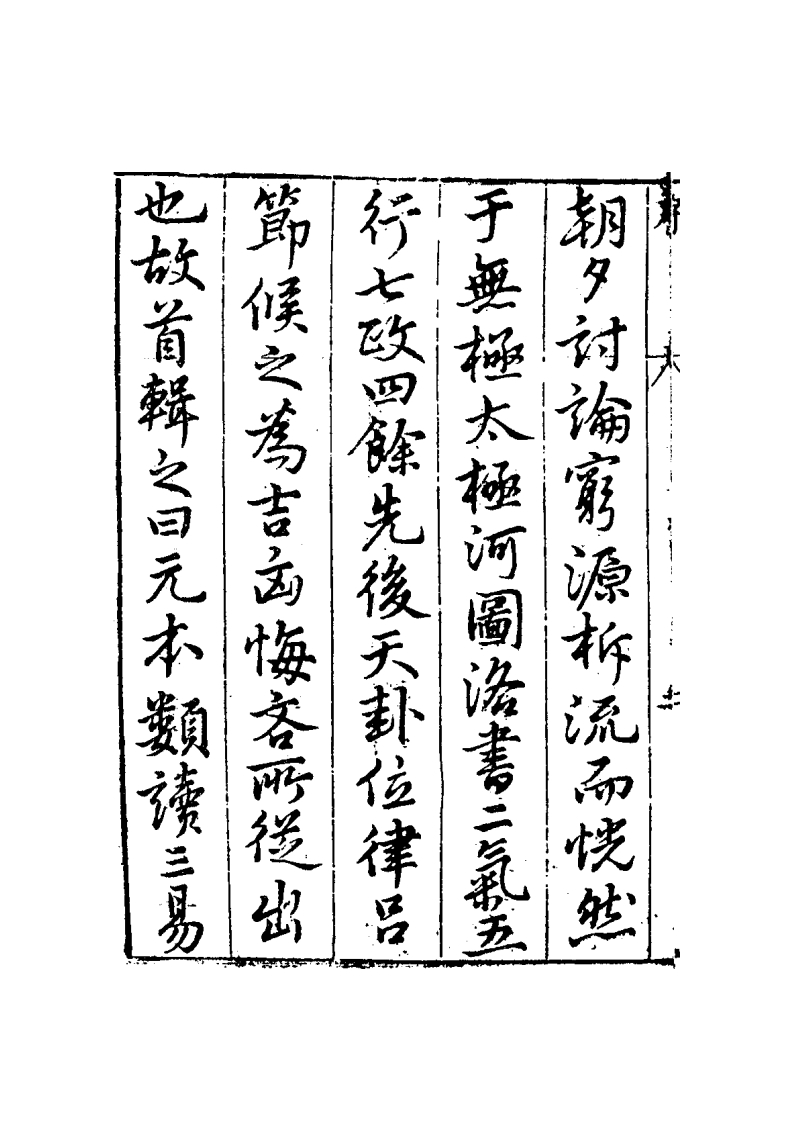 朝夕討論窮源析流而恍然
于無極太極河圖洛書二氣五
行七政四餘先後天卦位律呂
節候之為吉凶悔吝所從出
也故首輯之曰元本類讀三易